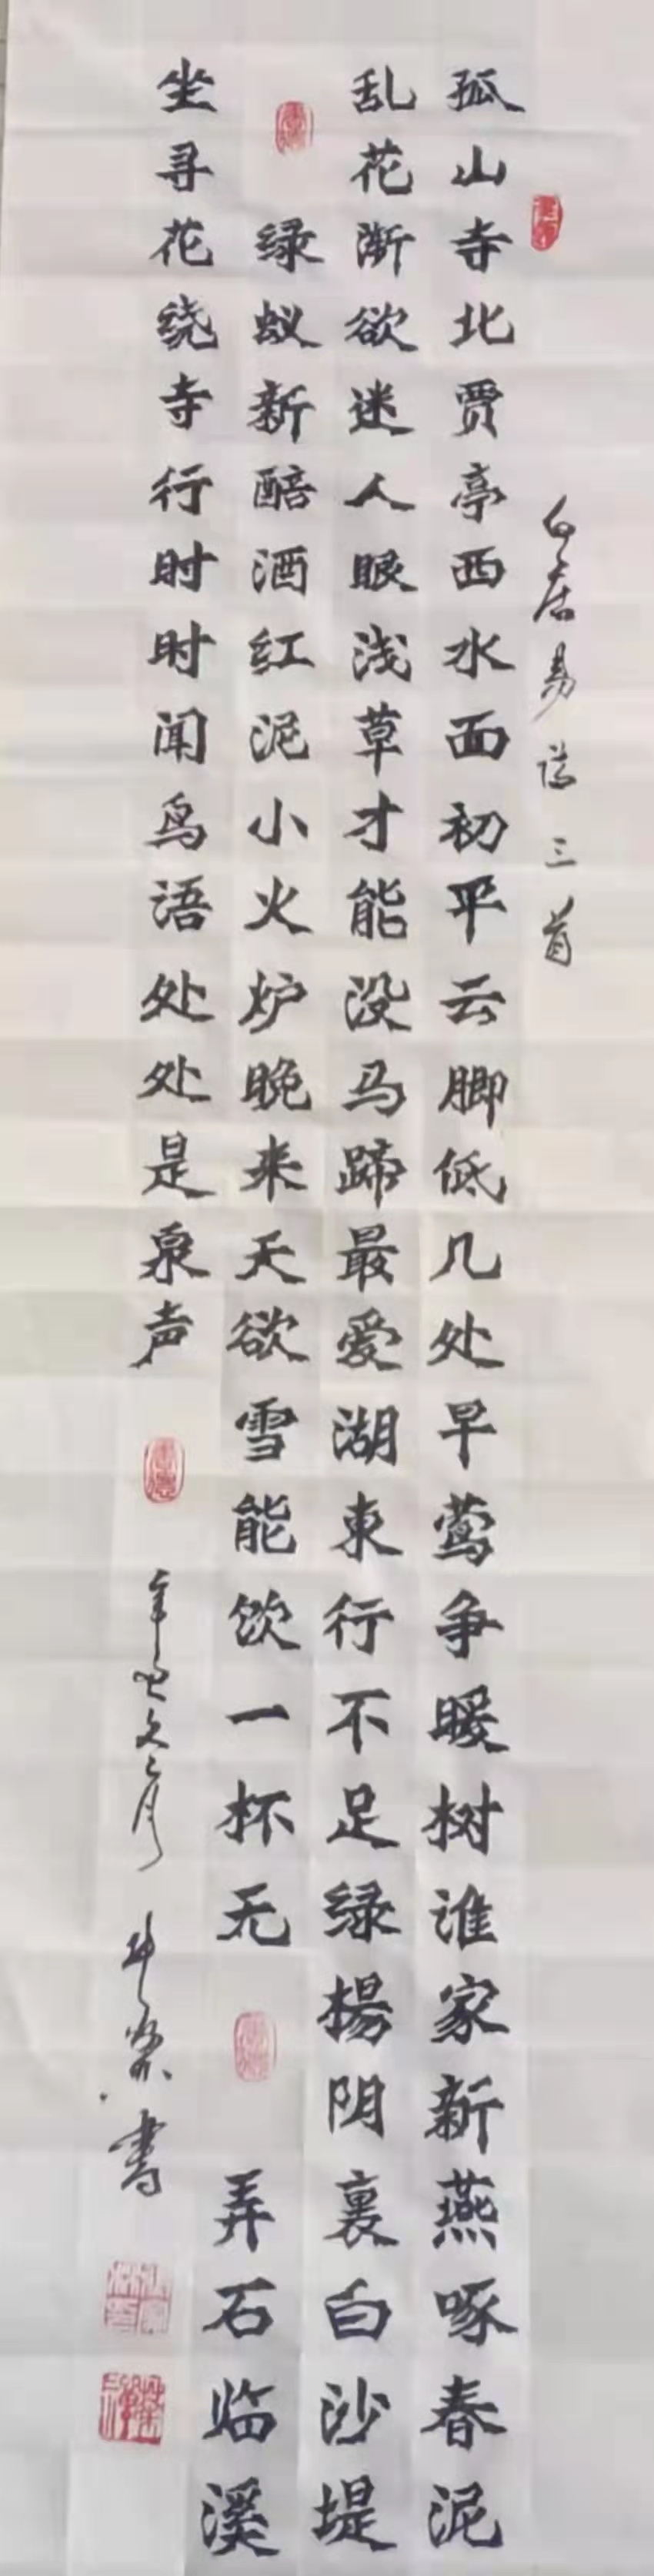 白居易诗三首
孤山寺北贾亭西水面初平云脚低几处早莺争暖树谁家新燕啄春泥
乱花渐欲迷人眼浅草才能没马蹄最爱湖東行不足绿楊阴裏白沙堤
绿蚁新醅酒红泥小火炉晚来天欲雪能饮一杯无 弄石临溪
坐寻花绕寺行时时闻鸟语处处是泉声
書